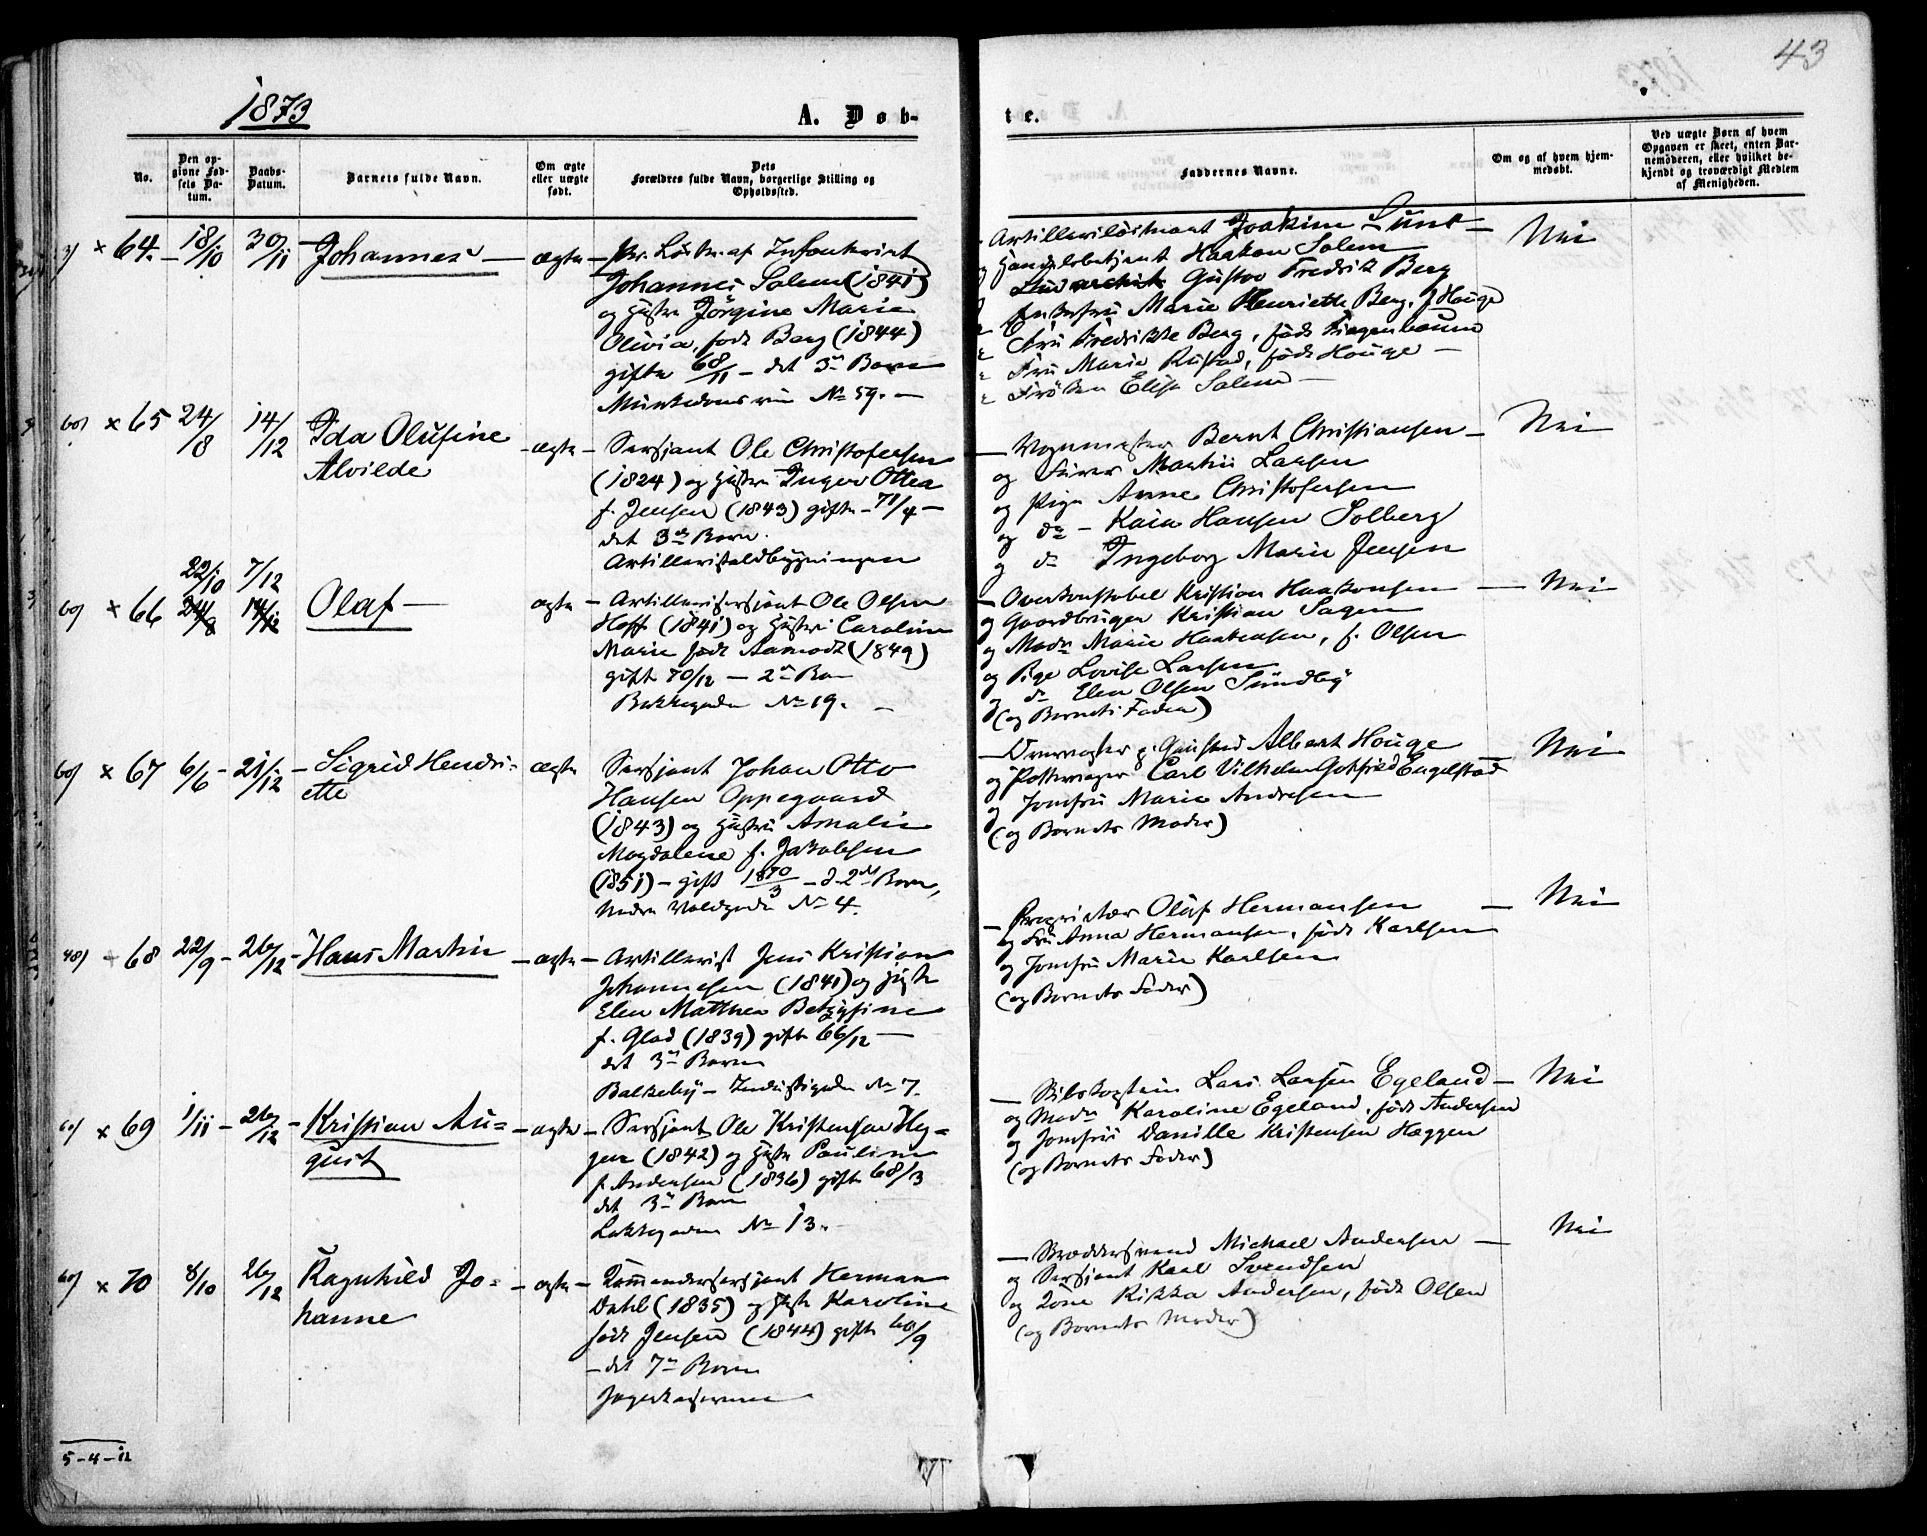 43
1873
A. Døb-
te.
No.
Den op-
givne Fød-
sels Da-
tum.
Daabs-
Datum.
Barnets fulde Navn.
Om ægte
eller uægte
født.
Dets
Forældres fulde Navn, borgerlige Stilling og
Opholdssted.
Faddernes Navne.
Om og af hvem hjem-
medøbt.
Ved uægte Børn af hvem
Opgaven er skeet, enten Bar-
nemøderen, eller hvilket be-
kjendt og troværdigt Medlem
af Menigheden.
× 64. 18/10 30/11 Johannes ægte
Pr. Løitn. af Infanteriet
Johannes Solem (1841)
og Hustru Jörgine Marie
Olivia, født Berg (1844)
gifte 68/11 - det 3die Barn
Munkedamsvei No 59.
Artilleriløitnant Joakim Lund
og Handelsbetjent Haakon Solem
Gustav Fredrik Berg
Marie Henriette Berg, f. Houge
Fru Fredrikke Berg, født
Fru Marie Rustad, født Houge
Frøken Elise Solem
Nei
60) × 65 24/8 14/12 Ida Olufine
Alvilde
ægte
Sersjant Ole Christofersen
(1824) og Hustru Inger Ottea
f. Jensen (1843) gifte 71/4
det 3die Barn.
Artilleristaldbygningen
Vognmester Bernt Christiansen
og Furer Martin Larsen
og Pige Anne Christofersen
og do - Kaia Hansen Solberg
og do Ingeborg Marie Jensen
Nei
22/10 7/12
60) × 66 24/8 14/12 Olaf ægte
Artillerisersjant Ole Olsen
Hoff (1841) og Hustru Caroline
Marie født Aamodt (1849)
gift 70/12 - 2det Barn
Bakkegaden No 19.
Overkonstabel Kristian Haakonsen
og Gaardbruger Kristian Sagen
og Madm Marie Haakensen, f. Olsen
og Pige Lovise Larsen
og do Elen Olsen Sundby
(og Barnets Fader)
Nei
60) × 67 6/6 21/12 Sigrid Hendri-
ette
ægte
Sersjant Johan Otto
Hansen Oppegaard
(1843) og Hustru Amalie
Magdalene f. Jakobsen
(1851) - gift 1870/3 - d. 2det Barn,
Nedre Voldgade No 4.
Albert Houge
og Pottemager Carl Vilhelm Gotfried Engelstad
og Jomfru Marie Andresen
(og Barnets Moder)
Nei
48) 68 22/9 26/12 Hans Martin ægte
Artillerist Jens Kristian
Johannesen (1841) og Hustru
Elen Matthea Betzysine
f. Glad (1839) gift 66/12
det 3die Barn
Balkeby - Industrigaden No 7.
Proprietær Olaf Hermansen
og Fru Anna Hermansen, født Karlsen
og Jomfru Marie Karlsen
(og Barnets Fader)
Nei
60) × 69 1/11 26/12 Kristian Au-
gust
ægte
Sersjant Ole Kristensen Heg-
gen (1842) og Hustru Pauline
f. Andersen (1836) gift 68/3
det 3die Barn
Lakkegaden No 13.
Lars Larsen Egeland
og Madm Karoline Egeland, født Andersen
og Jomfru Danille Kristensen Heggen
(og Barnets Fader)
Nei
60) × 70 8/10 26/12 Ragnhild Jo-
hanne
ægte
Kommandersersjant Herman
Dahl (1835) og Hustru Karoline
født Jensen (1844) gift 60/9
- det 7de Barn
Jægerkasernen
Michael Andersen
og Sersjant Karl Svendsen
og Kone Rikka Andersen, født Olsen
(og Barnets Moder)
Nei
5-4-12